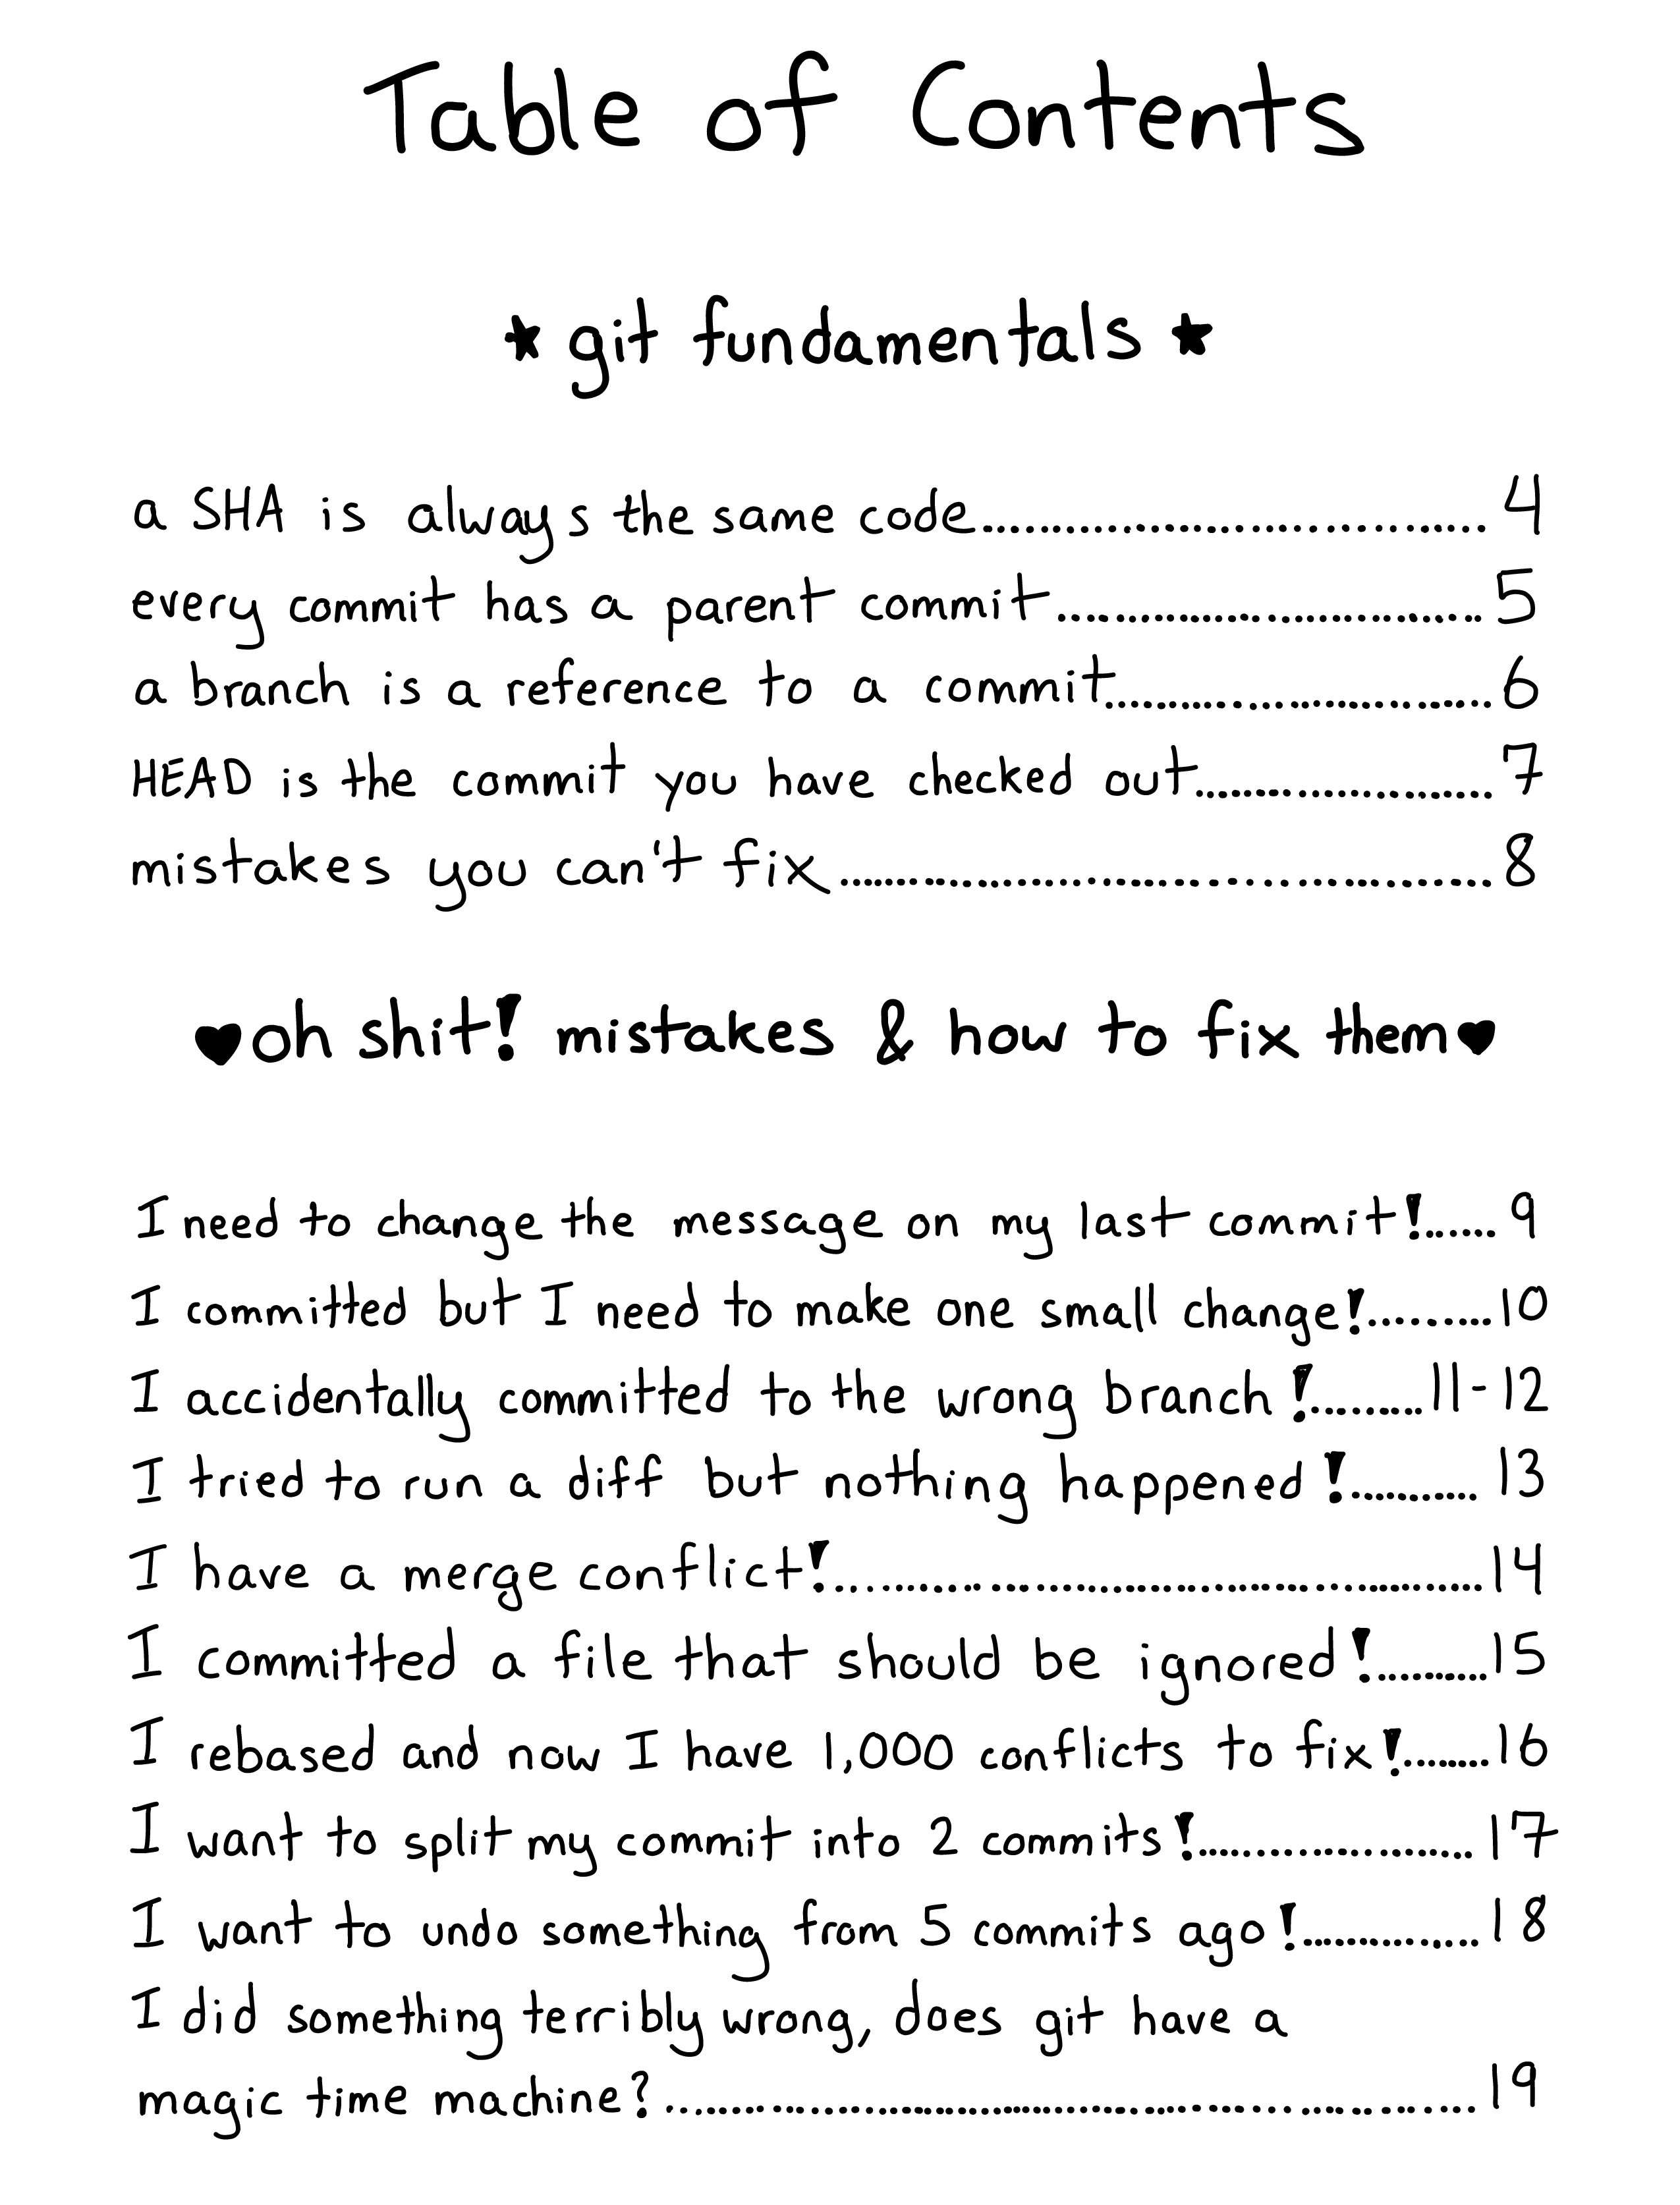 Table of Contents
★ git fundamentals ★
a SHA is always the same code.................................... 4
every commit has a parent commit.................................... 5
a branch is a reference to a commit.................................... 6
HEAD is the commit you have checked out........................ 7
mistakes you can't fix.................................... 8
♥oh shit! mistakes & how to fix them♥
I need to change the message on my last commit!...... 9
I committed but I need to make one small change!.........10
I accidentally committed to the wrong branch!.........11-12
I tried to run a diff but nothing happened!........... 13
I have a merge conflict!....................................14
I committed a file that should be ignored!..........15
I rebased and now I have 1,000 conflicts to fix!........16
I want to split my commit into 2 commits!.................... 17
I want to undo something from 5 commits ago!.............. 18
I did something terribly wrong, does git have a
magic time machine?.................................... 19